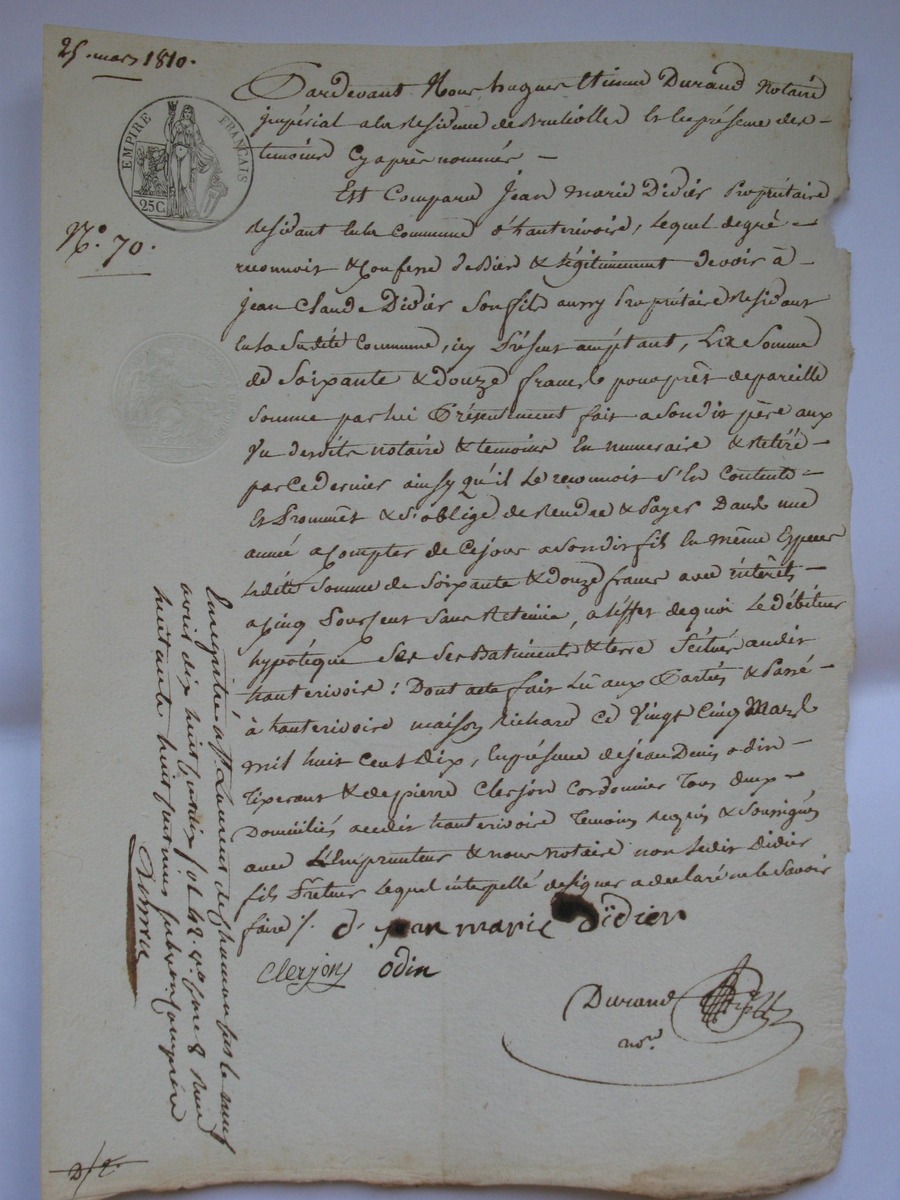 25. mars 1810.
EMPIRE FRANÇAIS
25 C.
N.o 70.
Pardevant Nous hugues Etienne Durand Notaire
jmpérial a la Residence de Brulliolles En la présence des
temoins Cy après nommés
Est Comparu Jean Marie Didier Propriétaire
Résidant En la Commune d'hauterivoire, lequel de gré
reconnoit & Confesse de Bien & légitimement devoir à
Jean Claude Didier Son fils aussy Propriétaire Résidant
En la Susdite Commune, icy Présent acceptant, La Somme
de Soixante & douze francs pour prêt de pareille
Somme par lui Présentement fait a Son dit père aux
Vu desdits notaire & temoins En numeraire & Retiré
par Ce dernier ainsy qu'il le reconnoit S'En Contente
Et Prommet & S'oblige de Rendre & Payer Dans une
année a Compter de Ce jour a Son dit fils En même Espèces
ladite Somme de Soixante & douze francs avec intérêts
a Cinq Pour Cent Sans Retenüe, a l'éffet de quoi le débiteur
hypotèque Ses Batiments & terre Scitués audit
hauterivoire! Dont acte fait Lû aux Parties & Passé
à hauterivoire maison Richard Ce Vingt Cinq Mars
mil huit Cent Dix, En présence de Jean Denis odin
Tixerant & de pierre Clerjon Cordonnier Tous deux
Domiciliés audit hauterivoire Temoins Requis & Soussignés
avec L'Emprunteur & nous Notaire non Ledit Didier
fils Prêteur Lequel interpellé de Signer a declaré ne le Savoir
faire /.
d. jean marie Didier
Clerjon odin
Durand
not.re
Enregistré à St Laurent de Chamousset le neuf
avril dix huit cent dix fol. 42